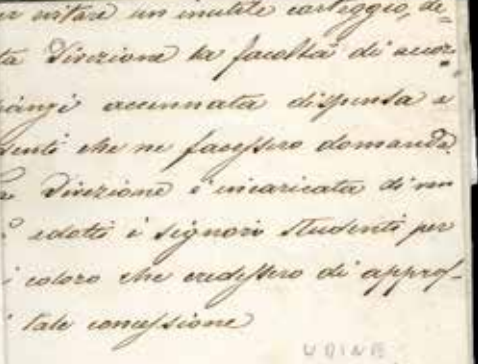 er evitare un inutile carteggio, de=
ta Direzione la facoltà di accor=
nanzi accennata dispensa a
denti che ne facessero domanda.
Direzione è incaricata di ren
edotti i Signori Studenti per
i coloro che credessero di approf=
tale concessione
UDINE